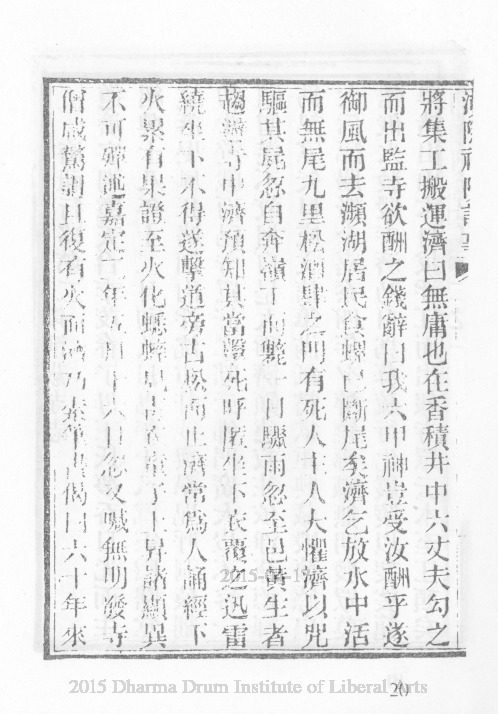 將集工搬運濟曰無庸也在香積井中六丈夫勾之
而出監寺欲酬之錢辭曰我六甲神豈受汝酬乎遂
御風而去瀕湖居民食螺已斷尾矣濟乞放水中活
而無尾九里松酒肆之門有死人主人大懼濟以咒
驅其屍忽自奔嶺下而斃一日驟雨忽至邑黃生者
趨避寺中濟預知其當擊死呼匿坐下衣覆之迅雷
繞坐下不得遂擊道旁古松而止濟常爲人誦經下
火累有果證至火化蟋蟀見青衣童子上昇諸顯異
不可殫述嘉定二年五月十六日忽又喊無明發寺
僧咸驚謂且復有火而濟乃索筆書偈曰六十年來
2015 Dharma Drum Institute of Liberal Arts
20